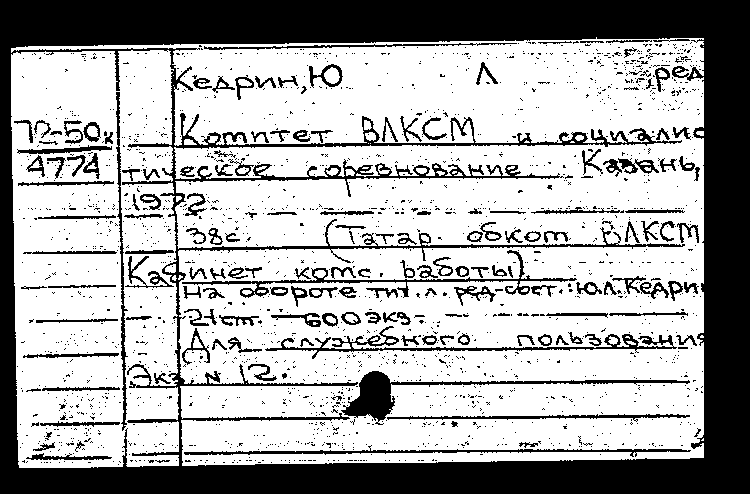 Кедрин, Ю Л ,ред
72-50к
4774
Комитет ВЛКСМ и социалис
тическое соревнование. Казань,
1972
38с. (Татар. обком ВЛКСМ
Кабинет комс. работы).
На обороте тит. л. ред-сост.: Ю.Л.Кедрин
21см. 600 экз.
Для служебного пользования
Экз. N 12.